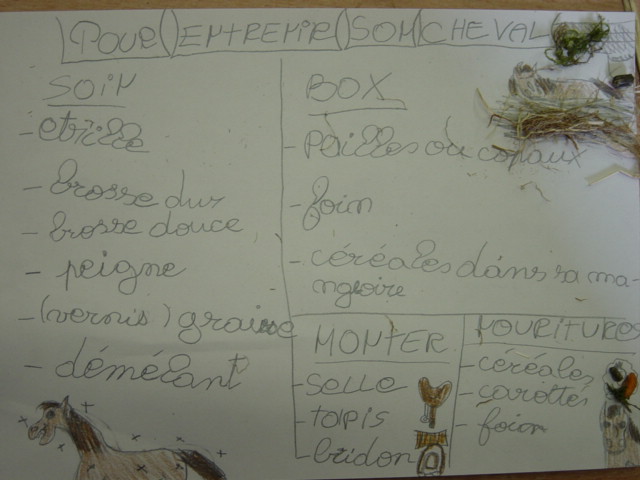 POUR ENTRENIR SON CHEVAL
SOIN
- étrille
- brosse dur
- brosse douce
- peigne
- (vernis) graisse
- démélant
BOX
- Pailles ou copaux
- foin
- céréales dans sa ma-
ngeoire
MONTER
- selle
- tapis
- bridon
NOURITURE
- céréales
- carottes
- foin